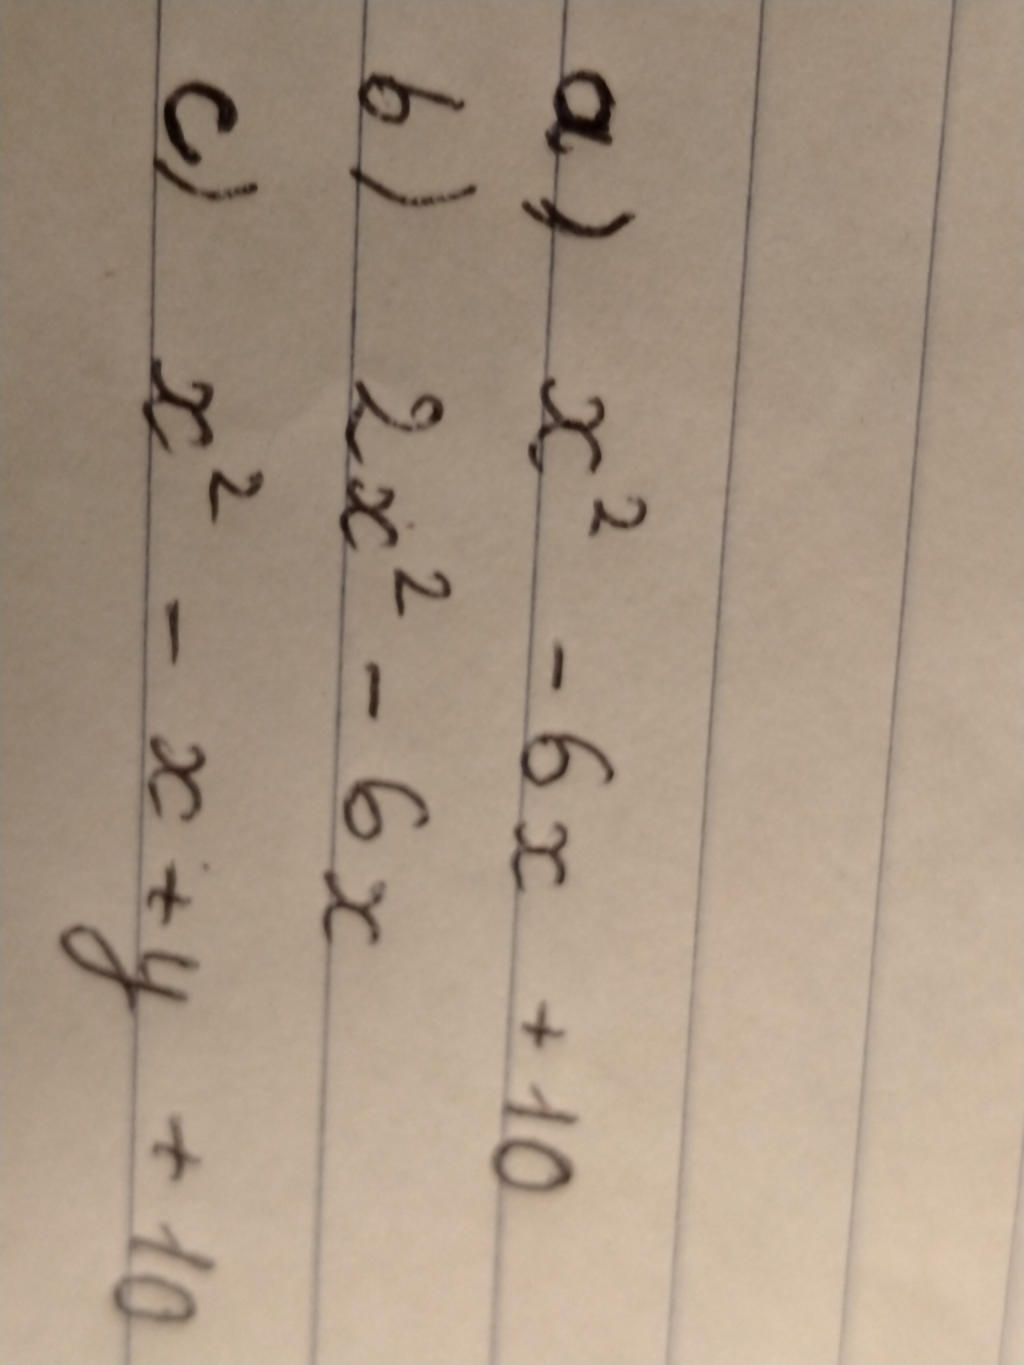 a) x² - 6x + 10
b) 2x² - 6x
c) x² - x + y + 10